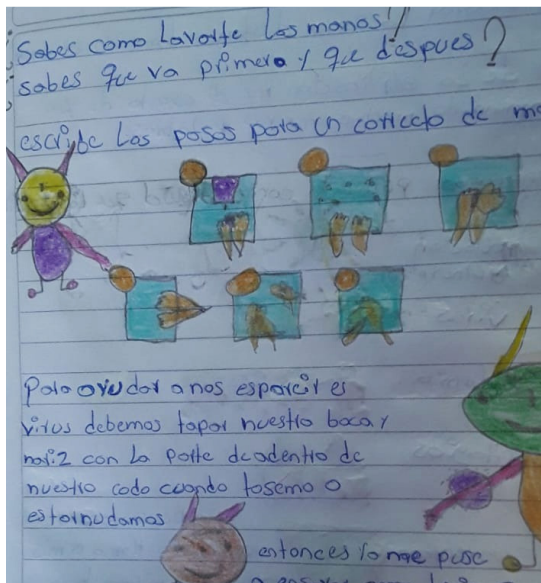 ¿Sabes como Lavarte Las manos?
sabes que va primero y que despues?
escribe Los pasos para un correcto de
Para ayudar a nos esparcir es
virus debemos tapar nuestro boca y
nariz con La parte deadentro de
nuestro codo cuando tosemo o
estornudamos
entonces